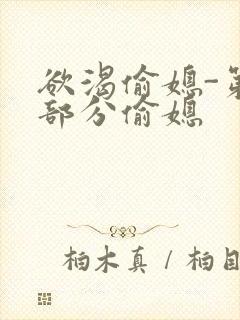 欲渴偷媳-第
部分偷媳
柏木真 / 柏自